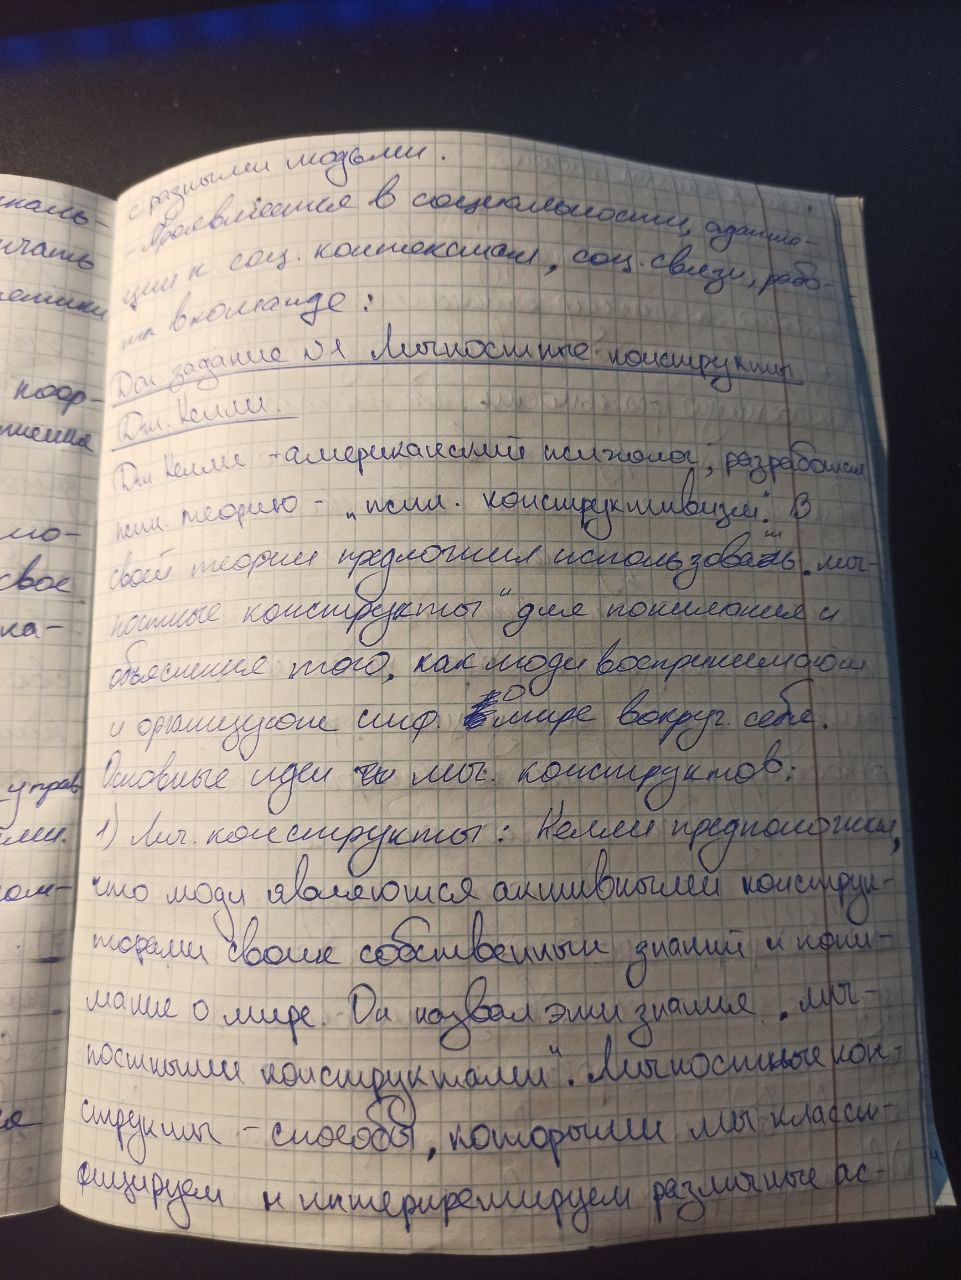 с разными людьми.
- Проявляется в социальности, адапта-
ции к соц. контекстам, соц. связи, рабо-
та в команде:
Дом задание №1 Личностные конструкты
Дж. Келли.
Дж. Келли - американский психолог, разработал
псих. теорию - "псих. конструктивизм". В
своей теории предложил использовать "лич-
ностные конструкты" для понимания и
объяснения того, как люди воспринимают
и организуют инф. о мире вокруг себя.
Основные идеи лич. конструктов:
1) Лич. конструкты: Келли предположил,
что люди являются активными конструк-
торами своих собственных знаний и пони-
мание о мире. Он назвал эти знания "лич-
ностными конструктами". Личностные кон-
структы - способы, которыми мы класси-
фицируем и интерпретируем различные ас-
наль-
ичать
коор-
мо-
свое
ка-
управ
ями.